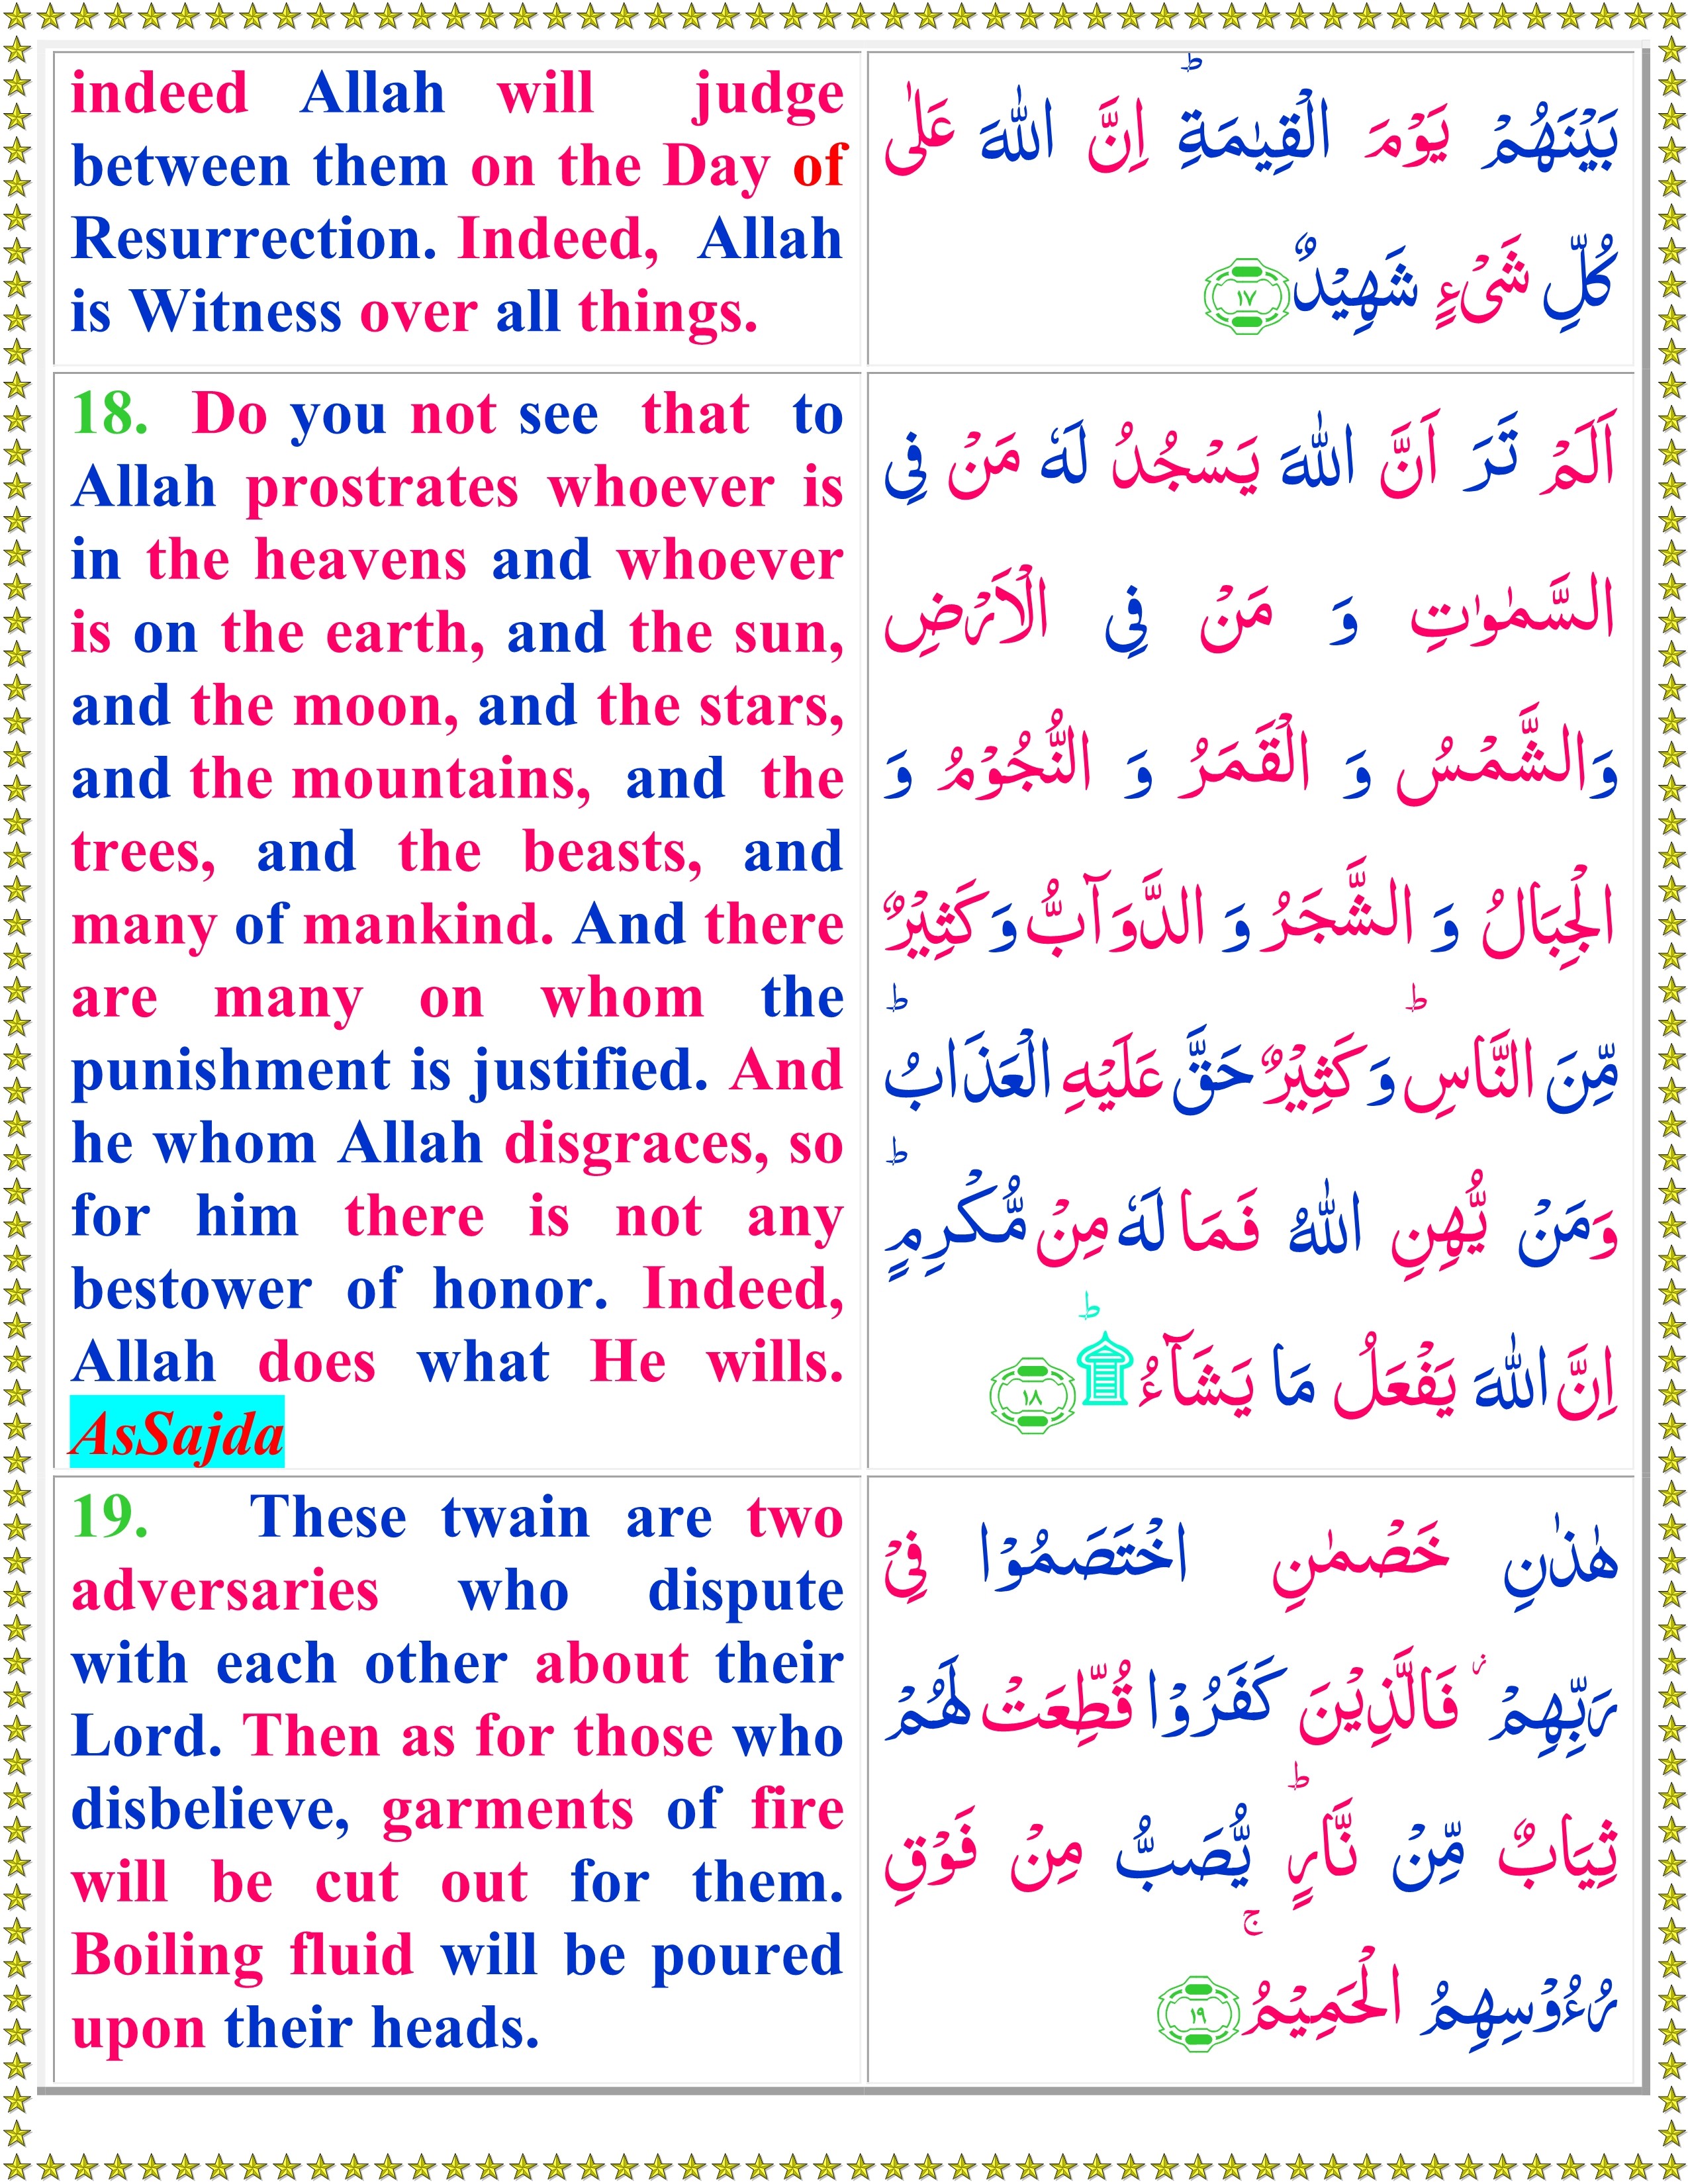 indeed Allah will judge
between them on the Day of
Resurrection. Indeed, Allah
is Witness over all things.
بَيْنَهُمْ يَوْمَ الْقِيٰمَةِ ؕ اِنَّ اللّٰهَ عَلٰى
كُلِّ شَىْءٍ شَهِيْدٌ ﴿۱۷﴾
18. Do you not see that to
Allah prostrates whoever is
in the heavens and whoever
is on the earth, and the sun,
and the moon, and the stars,
and the mountains, and the
trees, and the beasts, and
many of mankind. And there
are many on whom the
punishment is justified. And
he whom Allah disgraces, so
for him there is not any
bestower of honor. Indeed,
Allah does what He wills.
AsSajda
اَلَمْ تَرَ اَنَّ اللّٰهَ يَسْجُدُ لَهٗ مَنْ فِى
السَّمٰوٰتِ وَ مَنْ فِى الْاَرْضِ
وَالشَّمْسُ وَ الْقَمَرُ وَ النُّجُوْمُ وَ
الْجِبَالُ وَ الشَّجَرُ وَ الدَّوَآبُّ وَكَثِيْرٌ
مِّنَ النَّاسِ ؕ وَكَثِيْرٌ حَقَّ عَلَيْهِ الْعَذَابُ ؕ
وَمَنْ يُّهِنِ اللّٰهُ فَمَا لَهٗ مِنْ مُّكْرِمٍ ؕ
اِنَّ اللّٰهَ يَفْعَلُ مَا يَشَآءُ ؕ ۩ ﴿۱۸﴾
19. These twain are two
adversaries who dispute
with each other about their
Lord. Then as for those who
disbelieve, garments of fire
will be cut out for them.
Boiling fluid will be poured
upon their heads.
هٰذٰنِ خَصْمٰنِ اخْتَصَمُوْا فِىْ
رَبِّهِمْ فَالَّذِيْنَ كَفَرُوْا قُطِّعَتْ لَهُمْ
ثِيَابٌ مِّنْ نَّارٍ ؕ يُّصَبُّ مِنْ فَوْقِ
رُءُوْسِهِمُ الْحَمِيْمُ ۚ ﴿۱۹﴾